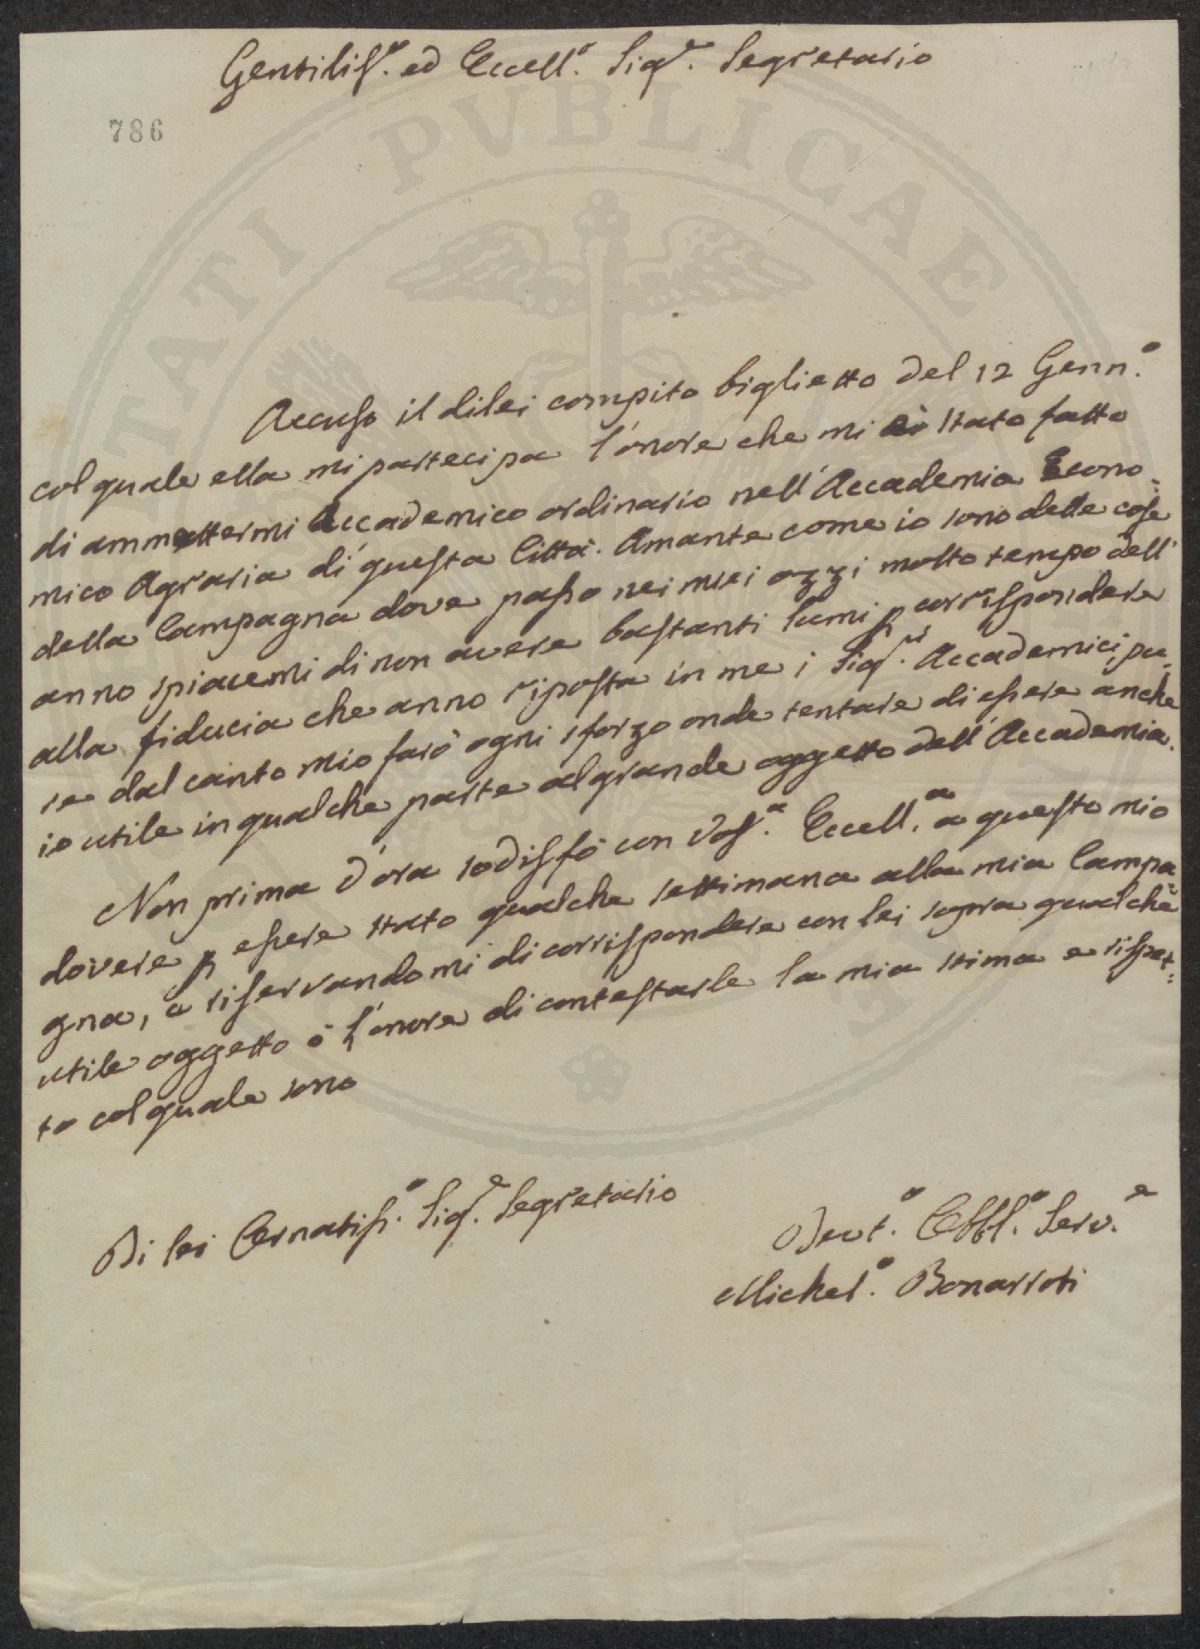 Gentilis.º ed Eccell.º Sig.re Segretario
786
Accuso il dilei compito biglietto del 12 Genn.º
col quale ella mi partecipa l'onore che mi è stato fatto
di ammettermi Accademico ordinario nell'Accademia Econo-
mico Agraria di questa Città. Amante come io sono delle cose
della Campagna dove passo nei miei ozzi molto tempo dell'
anno spiacemi di non avere bastanti lumi p corrispondere
alla fiducia che anno riposta in me i Sig.ri Accademici, pu-
re dal canto mio farò ogni sforzo onde tentare di essere anche
io utile in qualche parte al grande oggetto dell'Accademia.
Non prima d'ora sodisfò con Vos.a Eccell.a a questo mio
dovere p essere stato qualche settimana alla mia Campa-
gna, e riservandomi di corrispondere con lei sopra qualche
utile oggetto ò l'onore di contestarle la mia stima e rispet-
to col quale sono
Di lei Ornatiss.º Sig.re Segretario
Devt.º Obbl.º Serv.e
Michel.º Bonarroti
TATI PVBLICAE